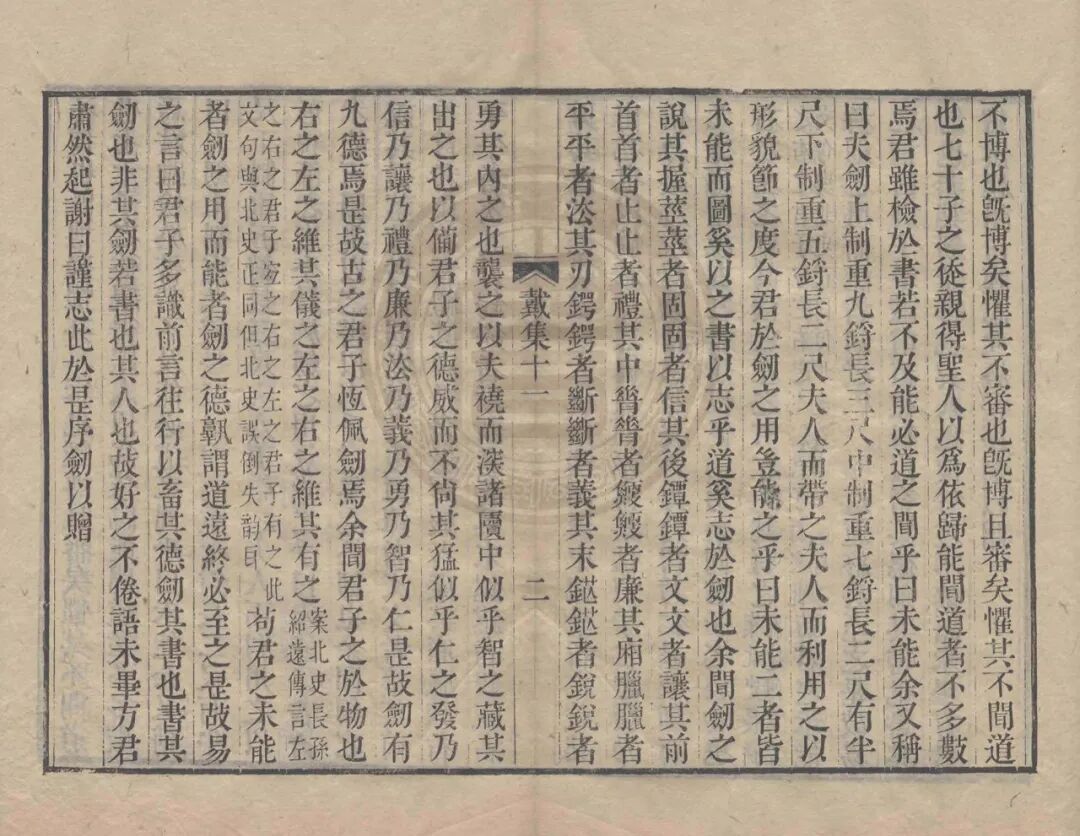 不博也旣博矣懼其不審也旣博且審矣懼其不聞道
也七十子之徒親得聖人以爲依歸能聞道者不多數
焉君雖檢於書若不及能必道之聞乎曰未能余又稱
曰夫劒上制重九鋝長三尺中制重七鋝長二尺有半
尺下制重五鋝長二尺夫人而帶之夫人而利用之以
形貌節之度今君於劒之用豈能之乎曰未能二者皆
未能而圖奚以之書以志乎道奚志於劒也余聞劒之
說其握莖莖者固固者信其後鐔鐔者文文者讓其前
首首者止止者禮其中脊脊者鯁鯁者廉其廂臘臘者
平平者法其刃鍔鍔者斷斷者義其末鋩鋩者銳銳者
戴集十一
二
勇其內之也襲之以夫襓而深諸匵中似乎智之藏其
出之也以備君子之德威而不尙其猛似乎仁之發乃
信乃讓乃禮乃廉乃法乃義乃勇乃智乃仁是故劒有
九德焉是故古之君子恆佩劒焉余聞君子之於物也
右之左之維其儀之左之右之維其有之
案北史長孫
紹遠傳言左
之右之君子宜之右之左之君子有之此
文句與北史正同但北史誤倒失韵耳
苟君之未能
者劒之用而能者劒之德孰謂道遠終必至之是故易
之言曰君子多識前言往行以畜其德劒其書也書其
劒也非其劒若書也其人也故好之不倦語未畢方君
肅然起謝曰謹志此於是序劒以贈